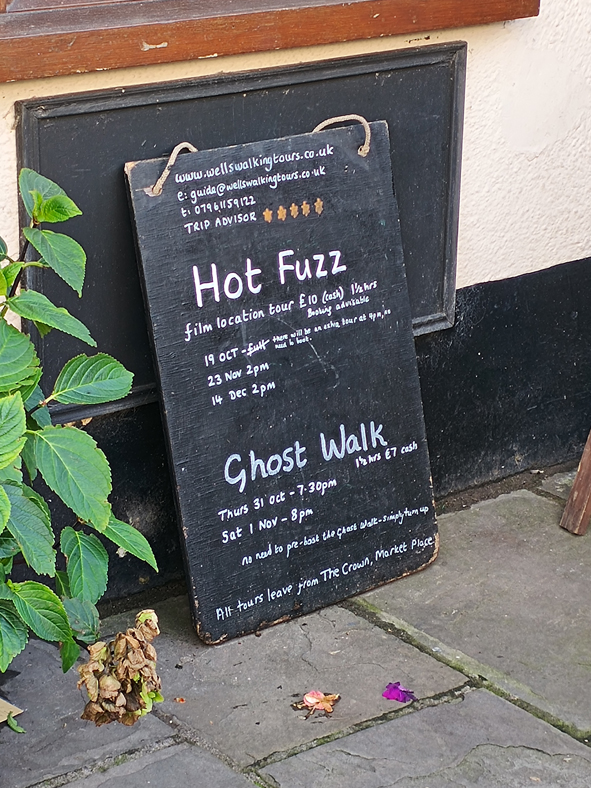 www.wellswalkingtours.co.uk
e: guide@wellswalkingtours.co.uk
t: 07961159122
TRIP ADVISOR
Hot Fuzz
film location tour £10 (cash) 1½ hrs
Booking advisable
19 OCT - full there will be an extra tour at 4pm, no
need to book.
23 Nov 2pm
14 Dec 2pm
Ghost Walk
1½ hrs £7 cash
Thurs 31 Oct - 7.30pm
Sat 1 Nov - 8pm
no need to pre-book the Ghost Walk - simply turn up
All tours leave from The Crown, Market Place